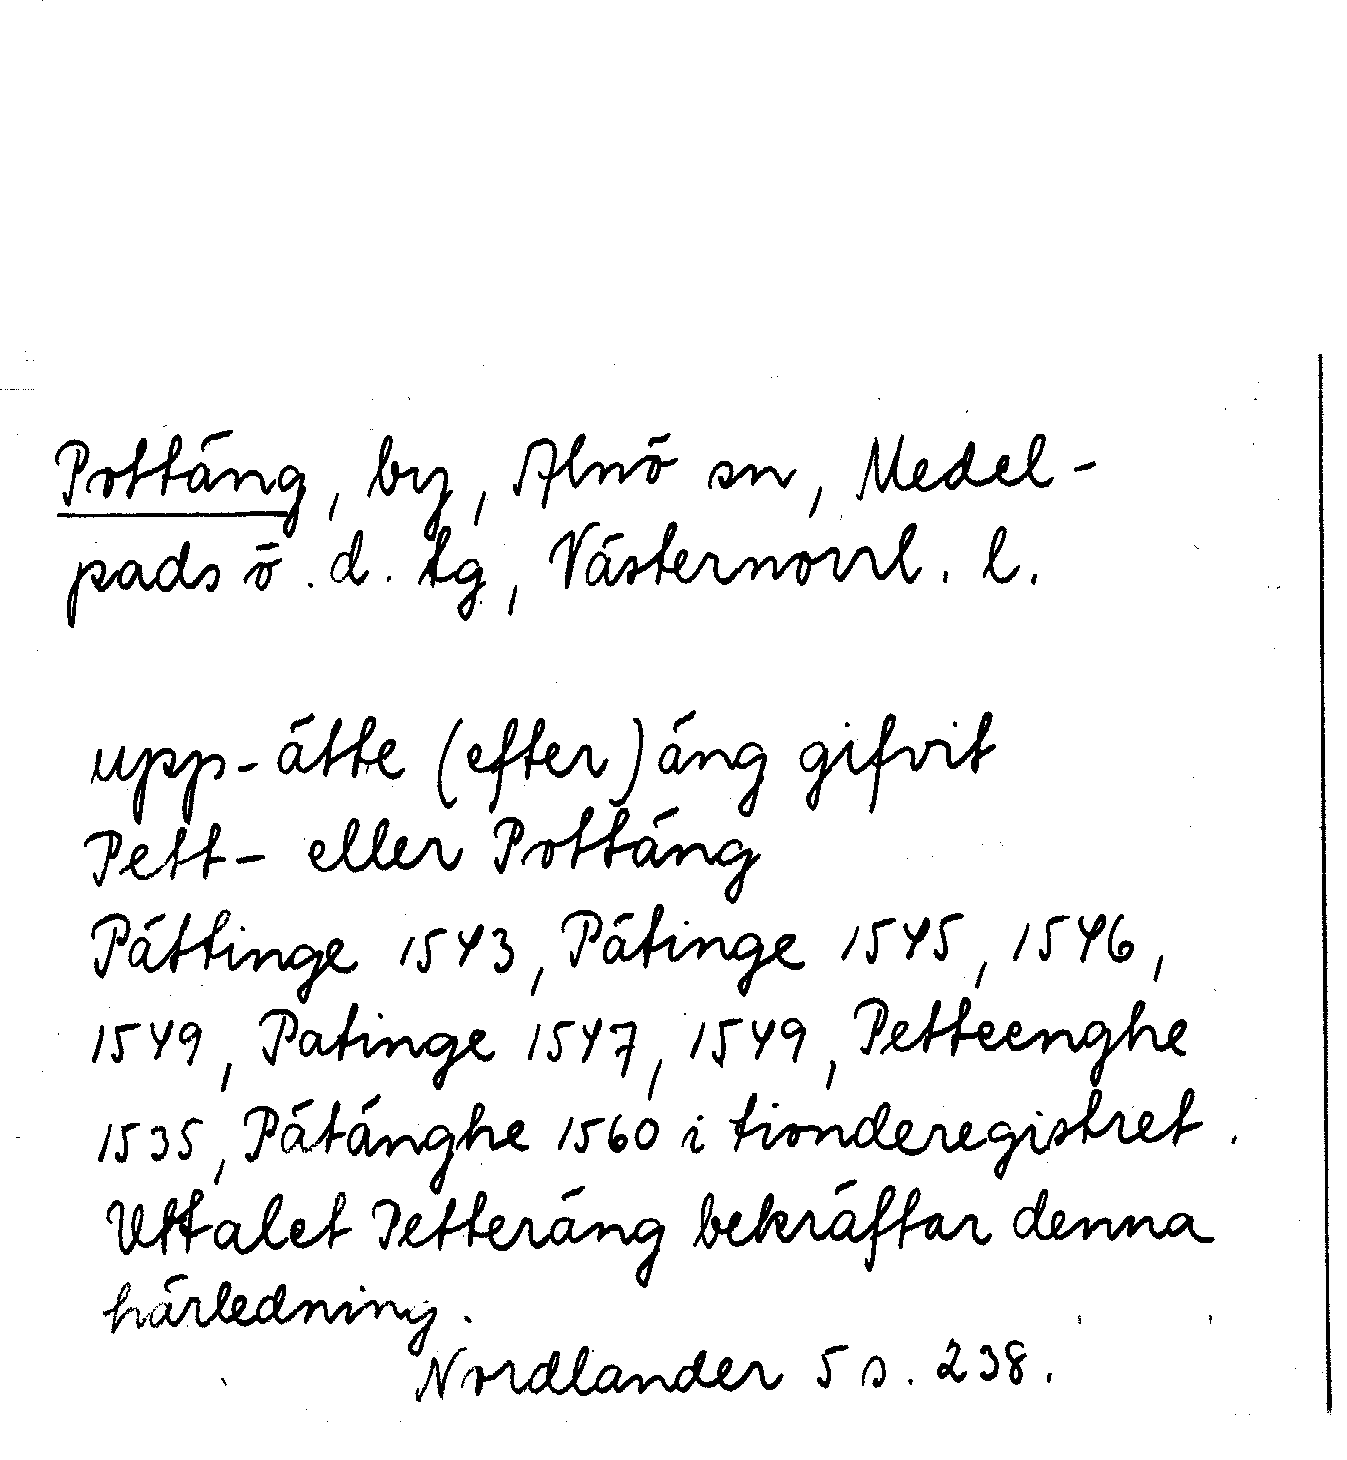 Pottäng, by, Alnö sn, Medel-
pads ö. d. tg, Västernorrl. l.
upp-ätte (efter) äng gifvit
Pett- eller Pottäng
Pättinge 1543, Pätinge 1545, 1546,
1549, Patinge 1547, 1549, Petteenghe
1535, Pätänghe 1560 i tionderegistret.
Uttalet Petteräng bekräftar denna
härledning.
Nordlander 5 s. 238.